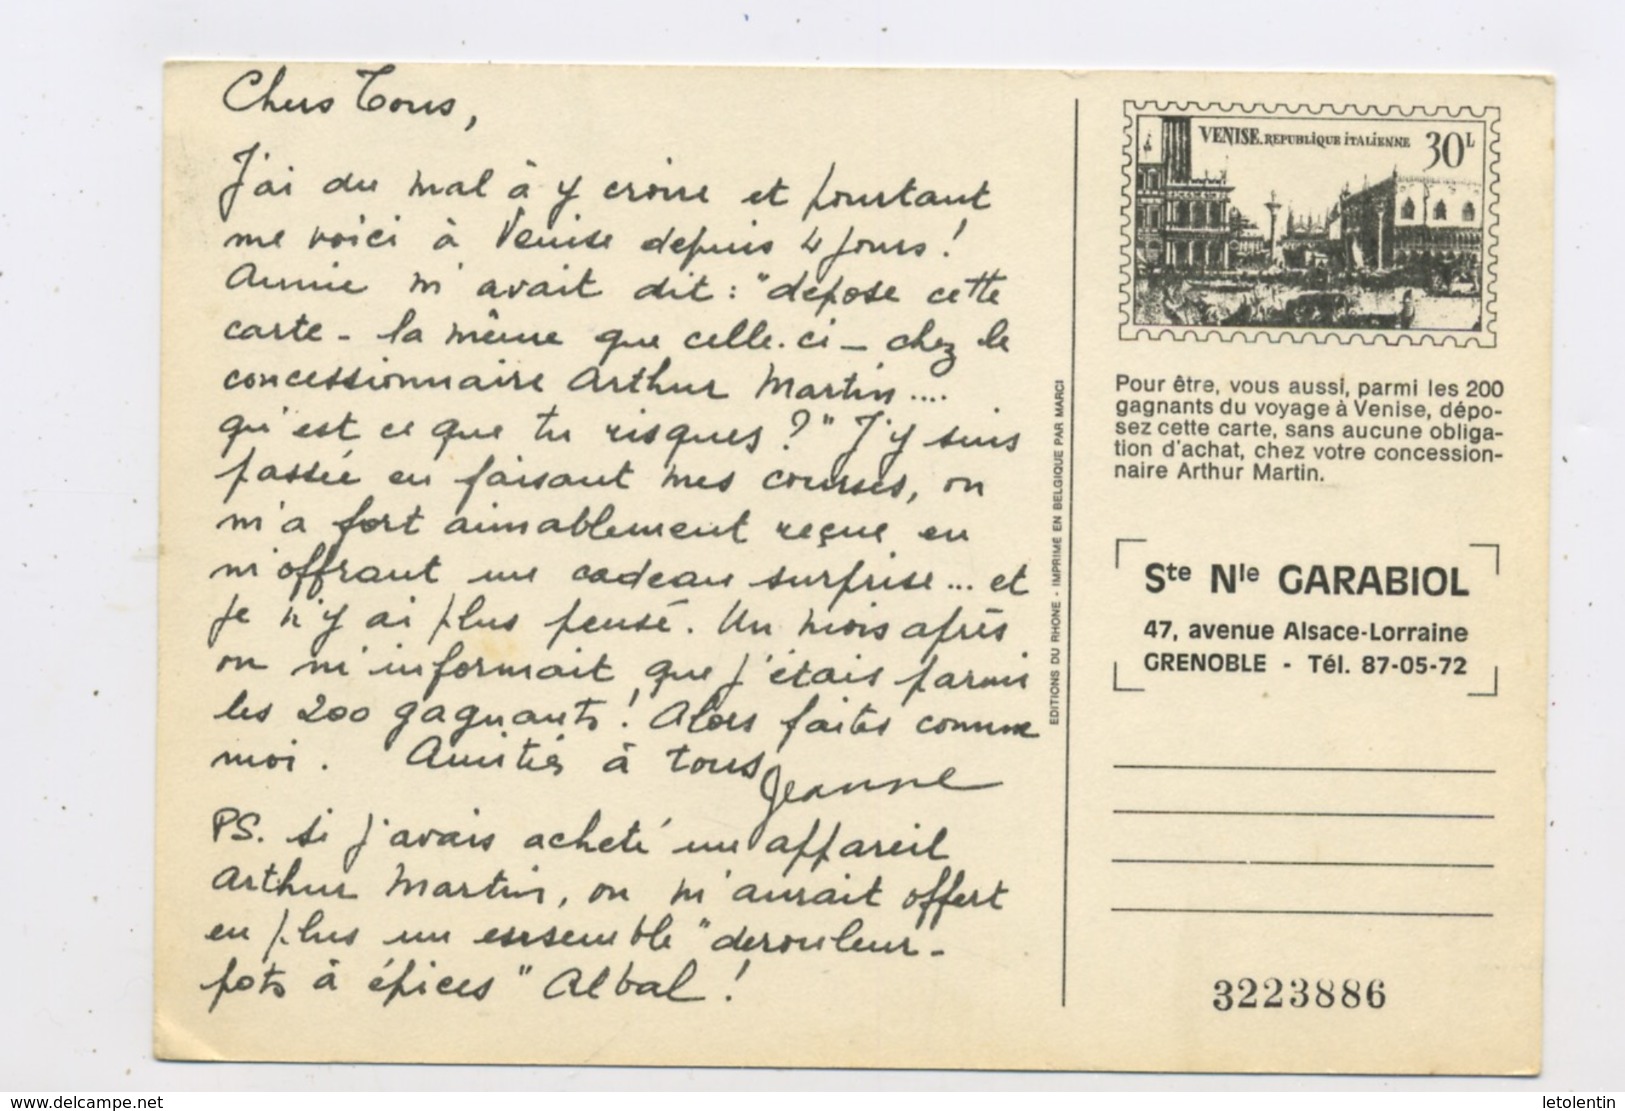 Chers Tous,
J'ai du mal à y croire et pourtant
me voici à Venise depuis 4 jours!
Annie m'avait dit: "dépose cette
carte - la même que celle-ci - chez le
concessionnaire Arthur Martin....
qu'est ce que tu risques?" J'y suis
passée en faisant mes courses, on
m'a fort aimablement reçue en
m'offrant un cadeau surprise... et
je n'y ai plus pensé. Un mois après
on m'informait que j'étais parmi
les 200 gagnants! Alors faites comme
moi. Amitiés à tous
Jeanne
PS. Si j'avais acheté un appareil
Arthur Martin, on m'aurait offert
en plus un ensemble "derouleur-
pots à épices" Albal!
EDITIONS DU RHONE - IMPRIME EN BELGIQUE PAR MARCI
VENISE. REPUBLIQUE ITALIENNE 30L
Pour être, vous aussi, parmi les 200
gagnants du voyage à Venise, dépo-
sez cette carte, sans aucune obliga-
tion d'achat, chez votre concession-
naire Arthur Martin.
Ste Nle GARABIOL
47, avenue Alsace-Lorraine
GRENOBLE - Tél. 87-05-72
3223886
www.delcampe.net
letolentin